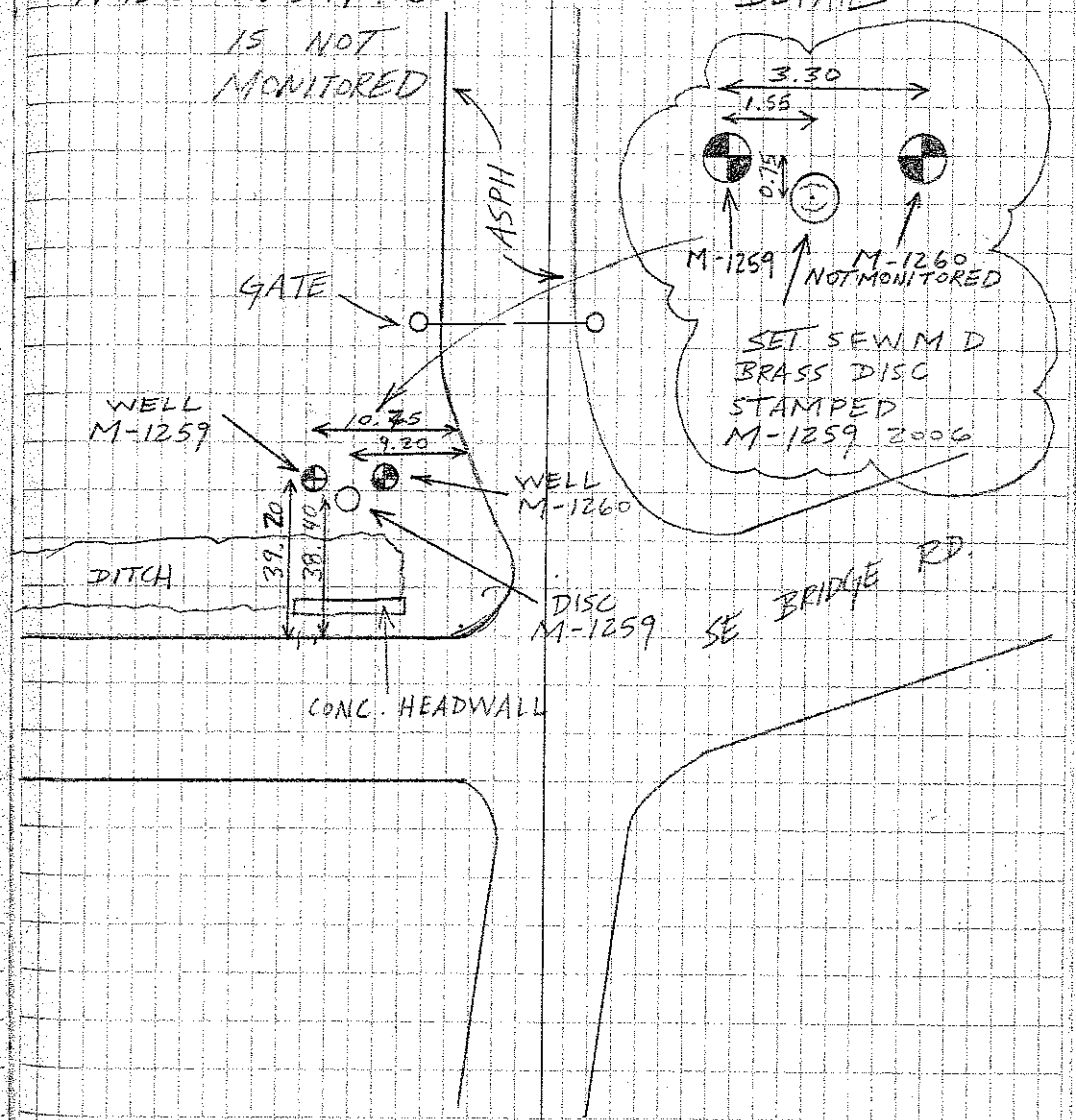 IS NOT
MONITORED
DETAIL
3.30
1.55
0.75
ASPH
M-1259
M-1260
NOT MONITORED
GATE
SET SFWMD
BRASS DISC
STAMPED
M-1259 2006
WELL
M-1259
9.20
WELL
M-1260
39.20
38.40
DITCH
DISC
M-1259
SE BRIDGE RD.
CONC. HEADWALL